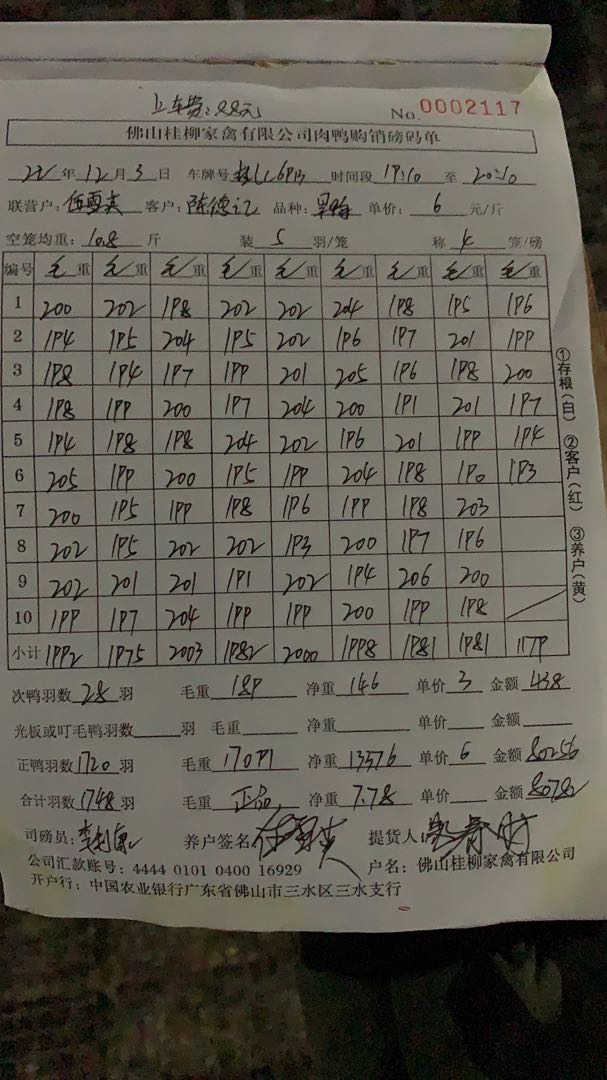 上车费:88元
No. 0002117
佛山桂柳家禽有限公司肉鸭购销磅码单
22 年 12 月 3 日 车牌号 时间段 19:10 至 20:10
联营户: 伍雪英 客户: 陈德记 品种: 单价: 6 元/斤
空笼均重: 10.8 斤 装 5 羽/笼 称 4 笼/磅
编号 毛重 毛重 毛重 毛重 毛重 毛重 毛重 毛重 毛重
1 200 202 198 202 202 204 198 195 196
2 194 195 204 195 202 196 197 201 199
3 198 194 197 199 201 205 196 198 200
4 198 199 200 197 204 200 191 201 197
5 194 198 198 204 202 196 201 199 194
6 205 199 200 195 199 204 198 190 193
7 200 195 199 198 196 199 198 203
8 202 195 202 202 193 200 197 196
9 202 201 201 191 202 194 206 200
10 199 197 204 199 199 200 199 198
小计 1992 1975 2003 1982 2000 1998 1981 1981 1179
次鸭羽数 28 羽 毛重 189 净重 146 单价 3 金额 438
光板或叮毛鸭羽数 羽 毛重 净重 单价 金额
正鸭羽数 1720 羽 毛重 17091 净重 13376 单价 6 金额 80256
合计羽数 1748 羽 毛重 正品 净重 7.78 单价 金额 80782
司磅员: 养户签名 伍雪英 提货人:
公司汇款账号: 4444 0101 0400 16929 户名: 佛山桂柳家禽有限公司
开户行: 中国农业银行广东省佛山市三水区三水支行
①存根(白) ②客户(红) ③养户(黄)